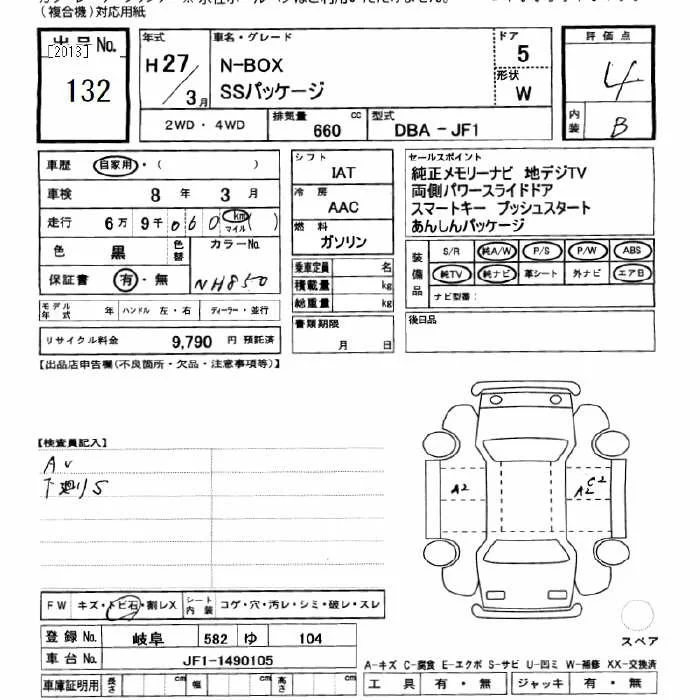 (複合機)対応用紙
出品No.
[2013]
132
年式
H27/3月
車名・グレード
N-BOX
SSパッケージ
ドア
5
形状
W
2WD・4WD
排気量
660 cc
型式
DBA－JF1
評価点
4
内装
B
車歴 自家用・( )
車検 8年 3月
走行 6万 9千 060 km マイル ( )
色 黒 色替 カラーNo.
保証書 有・無 NH850
モデル年式 年 ハンドル 左・右 ディーラー・並行
リサイクル料金 9,790 円 預託済
シフト
IAT
冷房
AAC
燃料
ガソリン
乗車定員 名
積載量 kg
総重量 kg
書類期限
月 日
セールスポイント
純正メモリーナビ 地デジTV
両側パワースライドドア
スマートキー プッシュスタート
あんしんパッケージ
装備品
S/R 純A/W P/S P/W ABS
純TV 純ナビ 革シート 外ナビ エアB
ナビ型番:
後日品
【出品店申告欄(不良箇所・欠品・注意事項等)】
【検査員記入】
AU
下廻りS
A2
A2 C2
FW キズ・トビ石・割レX シート内装 コゲ・穴・汚レ・シミ・破レ・スレ
登録No. 岐阜 582 ゆ 104
車台No. JF1-1490105
車庫証明用 長さ cm 幅 cm 高さ cm
スペア
A-キズ C-腐食 E-エクボ S-サビ U-凹ミ W-補修 XX-交換済
工具 有・無 ジャッキ 有・無